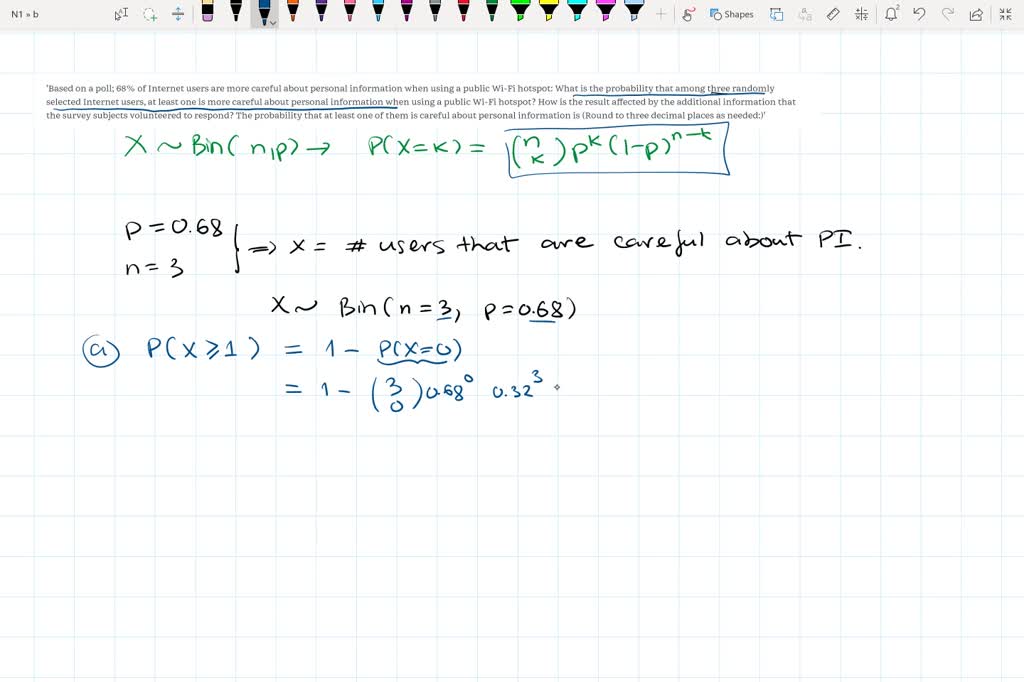 N1 » b
Shapes
2
'Based on a poll; 68% of Internet users are more careful about personal information when using a public Wi-Fi hotspot: What is the probability that among three randomly
selected Internet users, at least one is more careful about personal information when using a public Wi-Fi hotspot? How is the result affected by the additional information that
the survey subjects volunteered to respond? The probability that at least one of them is careful about personal information is (Round to three decimal places as needed:)'
X ~ Bin(n,p) → P(X=k) = (n k) p^k (1-p)^n-k
p = 0.68
n = 3
} ⇒ X = # users that are careful about PI.
X ~ Bin(n=3, p=0.68)
(a) P(X ≥ 1) = 1 - P(X=0)
= 1 - (3 0) 0.68^0 0.32^3